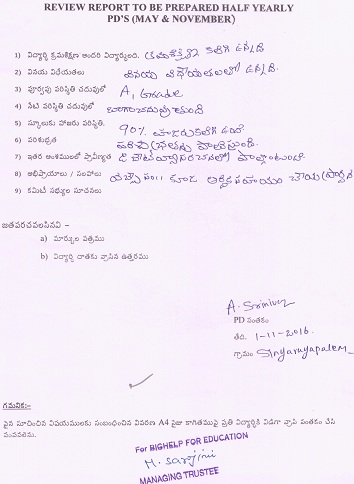 REVIEW REPORT TO BE PREPARED HALF YEARLY
PD'S (MAY & NOVEMBER)
1) విద్యార్థి క్రమశిక్షణ అందరి విద్యార్థులంది. క్రమశిక్షణ కలిగి ఉన్నది
2) వినయ విధేయతలు వినయ విధేయతలలో ఉన్నది.
3) పూర్వపు పరిస్థితి చదువులో A, Grade
4) నేటి పరిస్థితి చదువులో బాగా చదువుతుంది
5) స్కూలుకు హాజరు పరిస్థితి. 90% హాజరు కలిగి ఉంది
6) పరిశుభ్రత పరిశుభ్రతను పాటిస్తుంది.
7) ఇతర అంశములలో ప్రావీణ్యత
8) అభిప్రాయాలు / సలహాలు
9) కమిటీ సభ్యుల సూచనలు
జతపరచవలసినవి -
a) మార్కుల పత్రము
b) విద్యార్థి దాతకు వ్రాసిన ఉత్తరము
A. Srinivas
PD సంతకం
తేది. 1-11-2016.
గ్రామం Singarayapalem
గమనిక:-
పైన సూచించిన విషయములకు సంబంధించిన వివరణ A4 సైజు కాగితముపై ప్రతి విద్యార్థికి విడిగా వ్రాసి సంతకం చేసి
పంపవలెను.
For BIGHELP FOR EDUCATION
M. Sarojini
MANAGING TRUSTEE